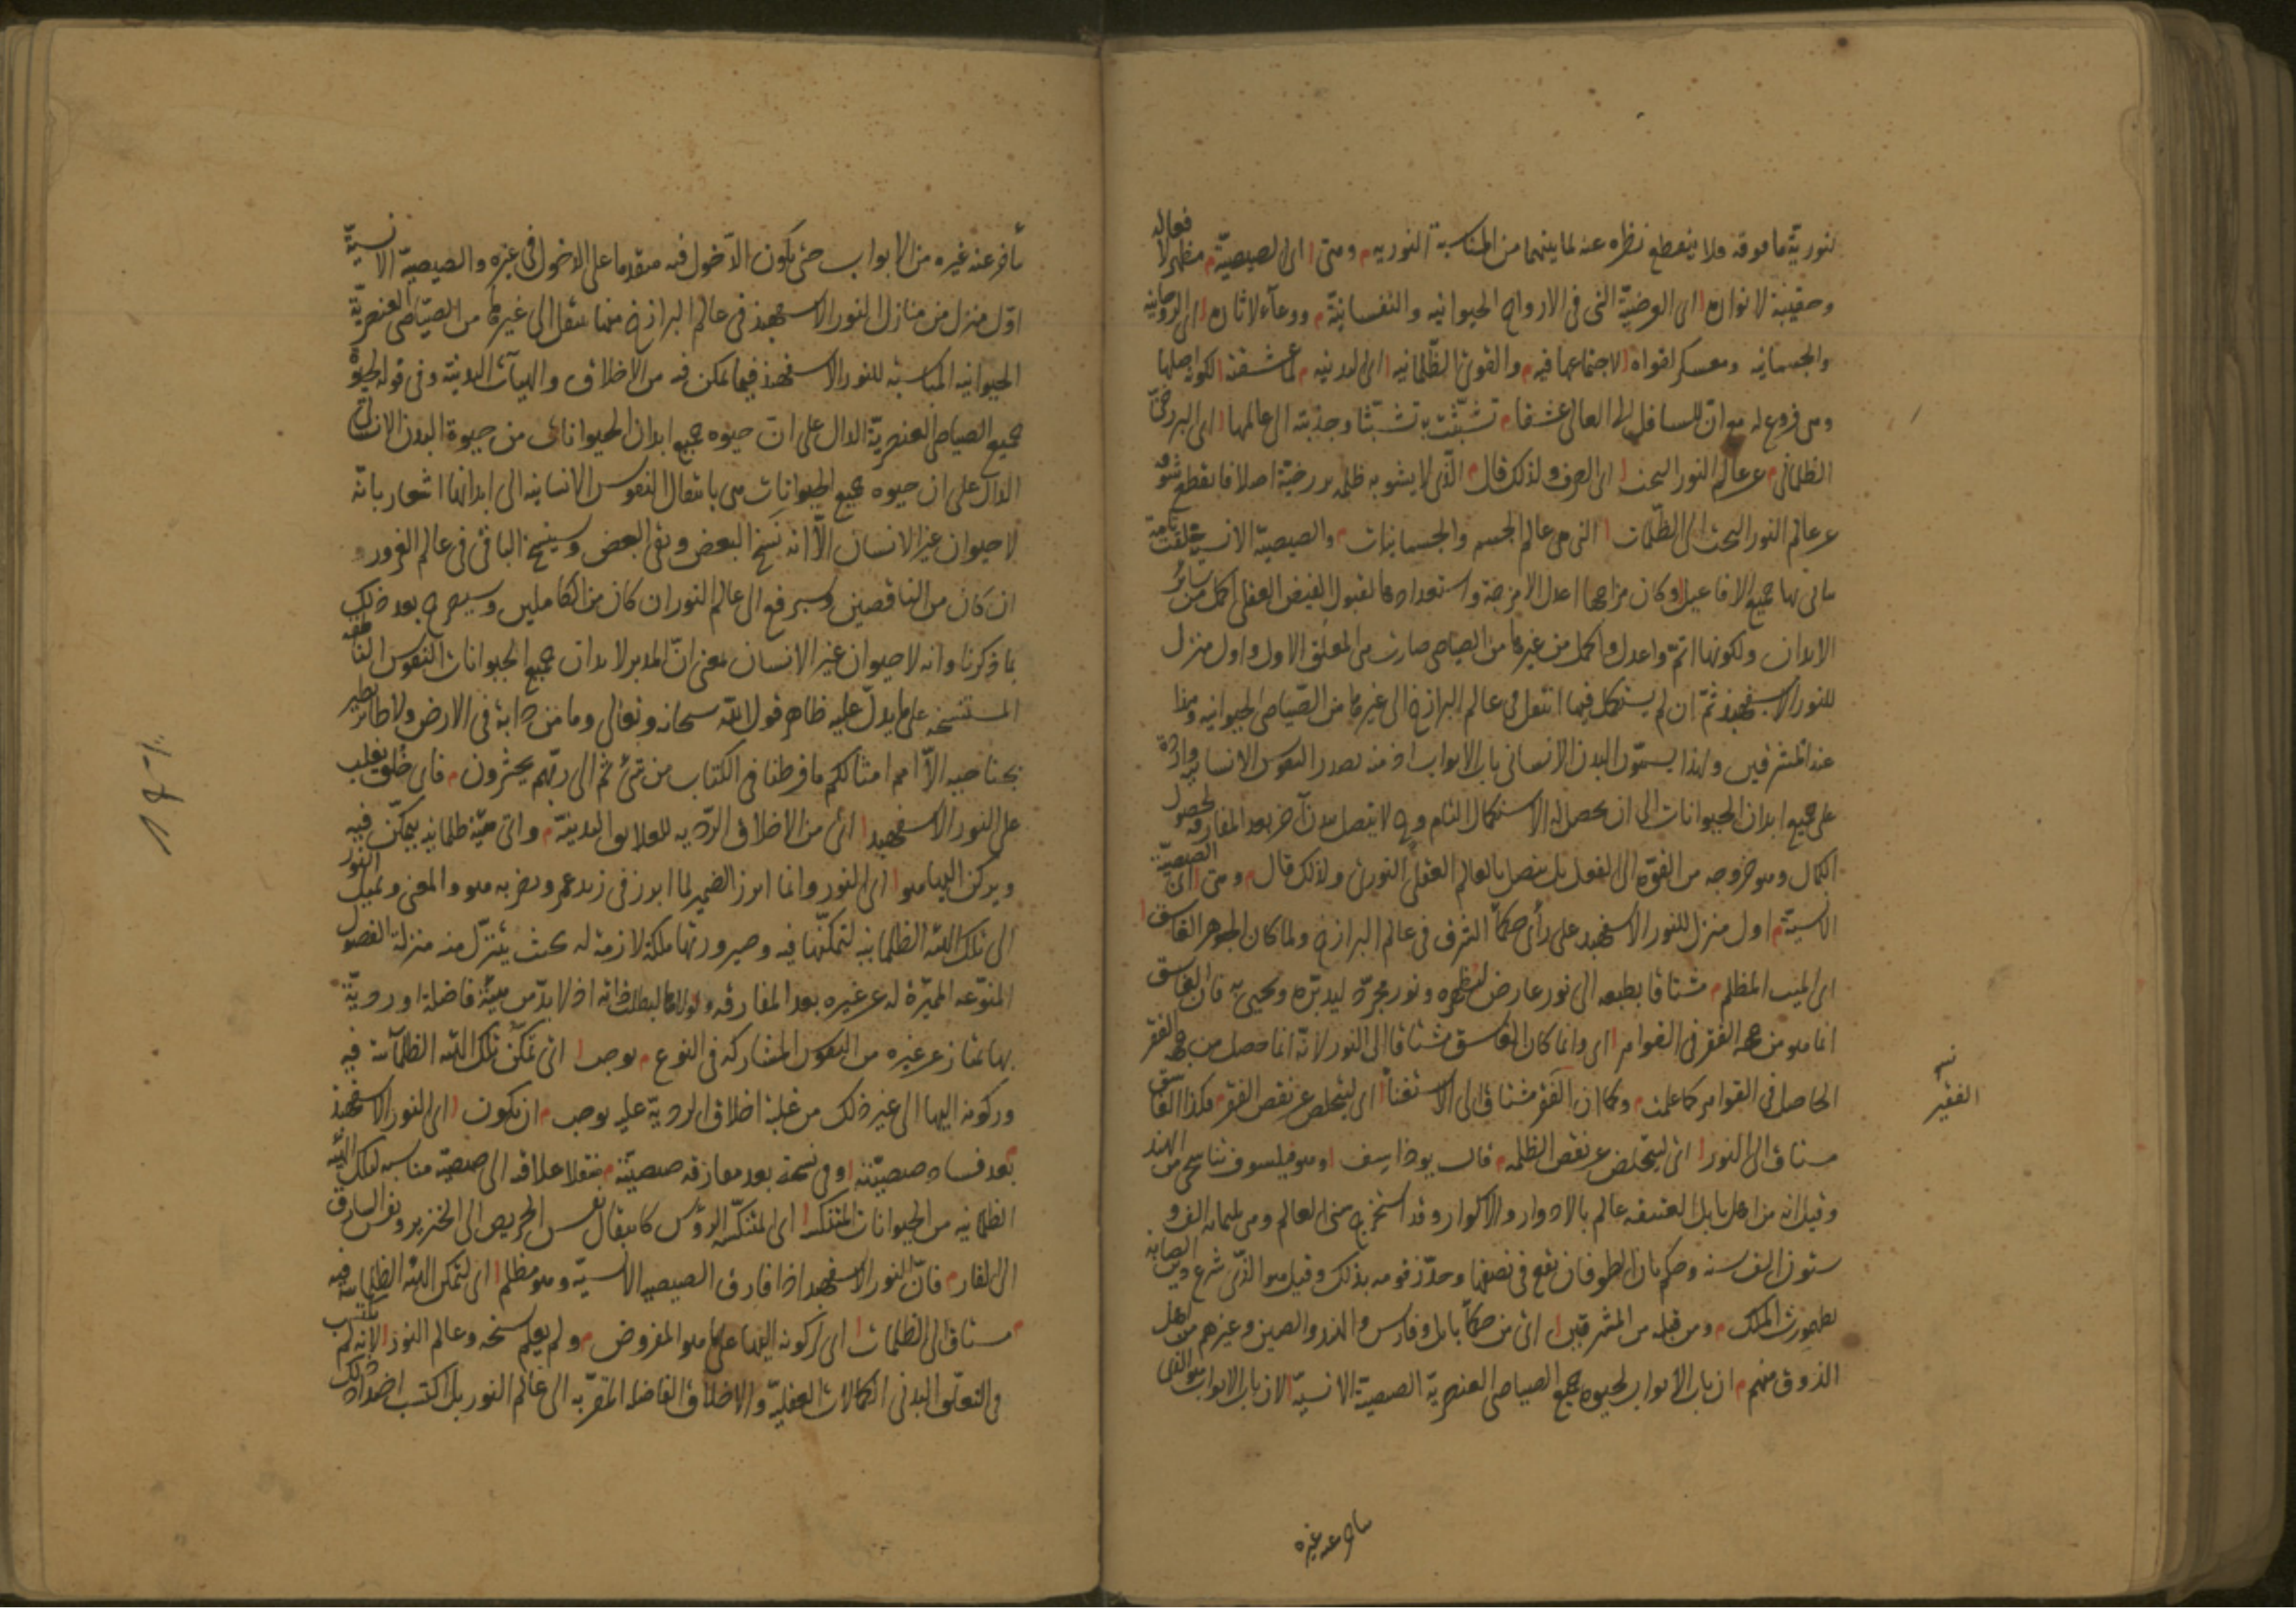 نورية ما فوقه ولا ينقطع نظره عنه لما بينهما من المناسبة النوريه وهى اى الصيصيّة مظهر لافعاله
وحقيبة لانواره اى العرضيّة التى فى الارواح الحيوانيه والنفسانيّة ووعاء لاثاره اى الروحانيه
والجسمانيه ومعسكر لقواه لاجتماعها فيه والقوى الظلمانيه اى البدنيه لما عشقته لكونه اصلها
وهى فروع له وان للسافل الى العالى عشقا تشبّثت به تشبّثا وجذبته الى عالمها اى البرزخىّ
الظلمانى عن عالم النور البحت اى الصرف ولذلك قال الّذى لا يشوبه ظلمه برزخيّة اصلا فانقطع شوقه
عن عالم النور البحت الى الظلمات التى هى عالم الجسم والجسمانيات والصيصية الانسية خلقت تامة
ياتى بها جميع الافاعيل وكان مزاجها اعدل الامزجة واستعدادها لقبول الفيض العقلى اكمل من سائر
الابدان ولكونها اتمّ واعدل واكمل من غيرها من الصياصى صارت هى المتعلق الاول واول منزل
للنور الاسفهبذ ثمّ ان لم يستكمل فيها انتقل فى عالم البرازخ الى غيرها من الصّياصى الحيوانيه وهذا
عند المشرقيين ولهذا يسمّون البدن الانسانى باب الابواب اذ منه يصدر النفوس الانسانية واردة
على جميع ابدان الحيوانات الى ان يحصل له الاستكمال التام وح لا يتصل ببدن آخر بعد المفارقة لحصول
الكمال وهو خروجه من القوة الى الفعل بل يتصل بالعالم العقلى النورى ولذلك قال وهى اى الصيصيّة
الانسيّة اول منزل للنور الاسفهبذ على رأى حكماء الشرق فى عالم البرازخ ولما كان الجوهر الغاسق
اى الميت المظلم مشتاقا بطبعه الى نور عارض ليظهره ونور مجرّد ليدبّره ويحيى به فان الغاسق
انما هو من جهه الفقر فى القواهر اى وانما كان الغاسق مشتاقا الى النور لانّه انما حصل من جهه الفقر
الحاصل فى القواهر كما علمت وكما ان الفقر مشتاق الى الاستغناء اى ليتخلص عن نقص الفقر فكذا الغاسق
مشتاق الى النور اى ليتخلص عن نقص الظلمه قال يوذاسف وهو فيلسوف تناسخى من الهند
وقيل انه من اهل بابل العتيقه عالم بالادوار والاكوار وقد استخرج سنى العالم وهى ثلثمايه الف و
ستون الف سنه وحكم بان الطوفان يقع فى نصفها وحذّر قومه بذلك وقيل هو الّذى شرع دين الصابئه
لطهمورث الملك ومن قبله من المشرقيين اى من حكماء بابل وفارس والهند والصين وغيرهم من اهل
الذوق منهم ان باب الابواب لحيوة جميع الصياصى العنصرية الصيصية الانسيّة لان باب الابواب هو الذى
نسـ
الفقير
ياخر عنه غيره
يأخر عنه غيره من الابواب حتى يكون الدّخول فيه متقدما على الدخول فى غيره والصيصيّة الانسيّة
اوّل منزل من منازل النور الاسفهبذ فى عالم البرازخ منها ينتقل الى غيرها من الصيّاصى العنصريّة
الحيوانيه المناسبه للنور الاسفهبذ فيما تمكن فيه من الاخلاق والهيآت البدنيّة وفى قوله لحيوة
جميع الصياصى العنصريّة الدال على ان حيوه جميع ابدان الحيوانات من حيوة البدن الانسانى
الدال على ان حيوه جميع الحيوانات هى بانتقال النفوس الانسانيه الى ابدانها اشعار بانّه
لا حيوان غير الانسان الّا انه نَسخ البعض وبقى البعض وسينسخ الباقى فى عالم الغرور
ان كان من الناقصين وسيرفع الى عالم النور ان كان من الكاملين وسيصرح بعد ذلك
بما ذكرنا وانه لا حيوان غير الانسان بمعنى انّ المدبر لابدان جميع الحيوانات النفوس الناطقه
المستنسخه على ما يدلّ عليه ظاهر قول الله سبحانه وتعالى وما من دابة فى الارض ولا طائر يطير
بجناحيه الّا امم امثالكم ما فرطنا فى الكتاب من شئ ثم الى ربّهم يحشرون فاى خُلق يغلب
على النور الاسفهبذ اى من الاخلاق الرديه للعلايق البدنيّة واى هيّة ظلمانيه يتمكّن فيه
ويركن اليها هو اى النور وانما ابرز الضمير لما ابرز فى زيد عمرو يضربه هو والمعنى ويميل النور
الى تلك الهيئه الظلمانيه لتمكّنها فيه وصيرورتها ملكة لازمة له بحيث يتنزّل منه منزلة الفصول
المنوّعه المميّزة له عن غيره بعد المفارقه ولولاها لبطلت ذاته اذ لابدّ من هيئة فاضلة او رديّة
بها يمتاز عن غيره من النفوس المشاركه فى النوع يوجب اى تمكّن تلك الهيئه الظلمآنية فيه
وركونه اليها الى غير ذلك من غلبة اخلاق الرديّة عليه يوجب ان يكون اى النور الاسفهبذ
بعد فساد صيصيّته وفى نسخة بعد مفارقه صيصيّته منتقلا علاقته الى صيصيّه مناسبه لتلك الهيئه
الظلمانيه من الحيوانات المنتكسة اى المنتكسّه الرؤس كانتقال نفس الحريص الى الخنزير ونفس السارق
الى الفار فانّ النور الاسفهبذ اذا فارق الصيصيه الانسيّة وهو مظلم اى لتمكن الهيئه الظلمانيه فيه
مشتاق الى الظلمات اى لركونه اليها على ما هو المفروض ولم يعلم سنخه وعالم النور لانه لم يكتسب
فى التعلّق البدنى الكمالات العقليّة والاخلاق الفاضله المقرّبه الى عالم النور بل اكتسب اضداد ذلك